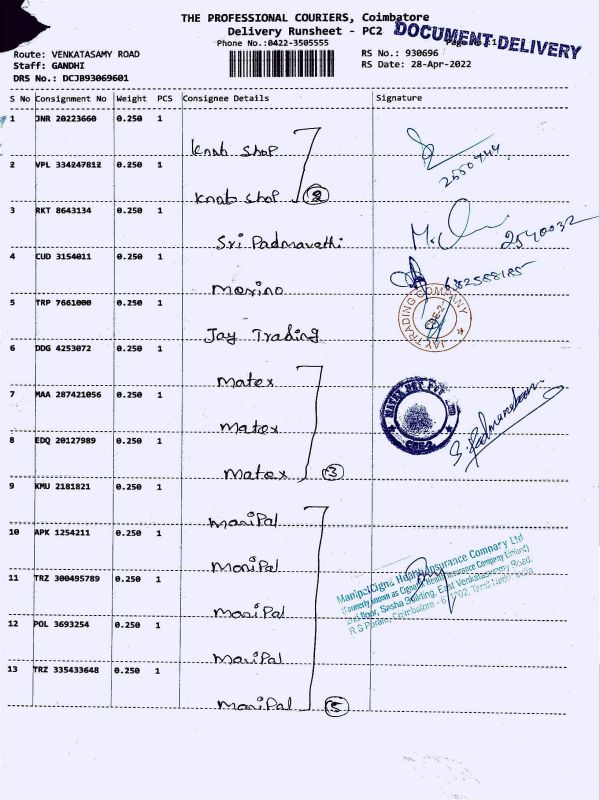 THE PROFESSIONAL COURIERS, Coimbatore
Delivery Runsheet - PC2
DOCUMENT DELIVERY
Phone No.:0422-3505555
Route: VENKATASAMY ROAD
RS No.: 930696
Staff: GANDHI
RS Date: 28-Apr-2022
DRS No.: DCJB93069601
S No Consignment No Weight PCS Consignee Details Signature
1 JNR 20223660 0.250 1
Knab shop
2550744
2 VPL 334247812 0.250 1
Knab shop 2
3 RKT 8643134 0.250 1
Sri Padmavathi
2540032
4 CUD 3154011 0.250 1
6382588185
Merino
5 TRP 7661000 0.250 1
Jay Trading
JAY TRADING COMPANY
CBE-2
6 DDG 4253072 0.250 1
Matex
7 MAA 287421056 0.250 1
Matex
CBE-2
S. Padmanaban
8 EDQ 20127989 0.250 1
Matex 3
9 KMU 2181821 0.250 1
ManiPal
10 APK 1254211 0.250 1
ManiPal
ManipalCigna Health Insurance Company Ltd
(Formerly known as Cigna Health Insurance Company Limited)
Floor, Sasha Building, East Venkatasamy Road,
R S Puram, Coimbatore - Tamil Nadu India
11 TRZ 300495789 0.250 1
ManiPal
12 POL 3693254 0.250 1
ManiPal
13 TRZ 335433648 0.250 1
ManiPal 5